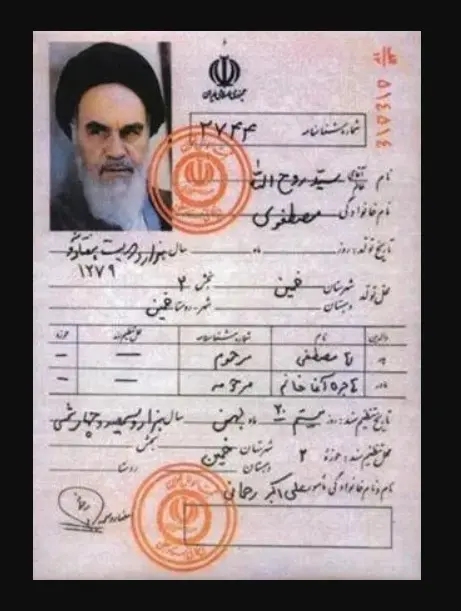 جمهوری اسلامی ایران
۵۱۴۵۱۴
شماره شناسنامه ۲۷۴۴
نام آقای خانم سید روح الله
نام خانوادگی مصطفوی
تاریخ تولد: روز ماه سال هزار و دویست هفتاد و نه
۱۲۷۹
محل تولد شهرستان خمین بخش ۲
دهستان شهر - روستا خمین
والدین نام شماره شناسنامه محل تنظیم سند حوزه
پدر مصطفی مرحوم — —
مادر هاجره آغا خانم مرحومه — —
تاریخ تنظیم سند: روز بیستم ۲۰ ماه بهمن سال هزار و سیصد و چهار شمسی
محل تنظیم سند: حوزه ۲ شهرستان خمین بخش
دهستان روستا
نام و نام خانوادگی مأمور علی اکبر رحمانی